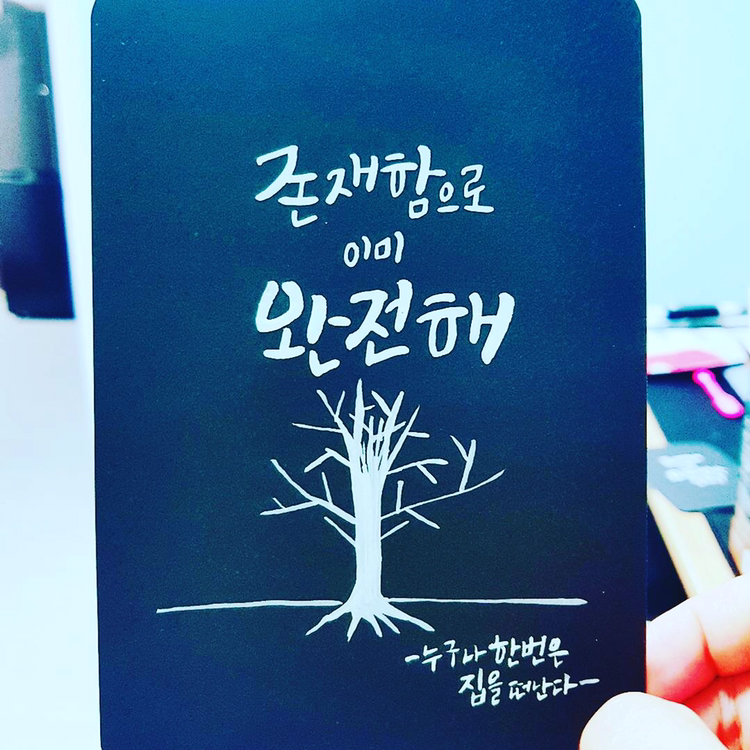 존재함으로
이미
완전해
-누구나 한번은
집을 떠난다-